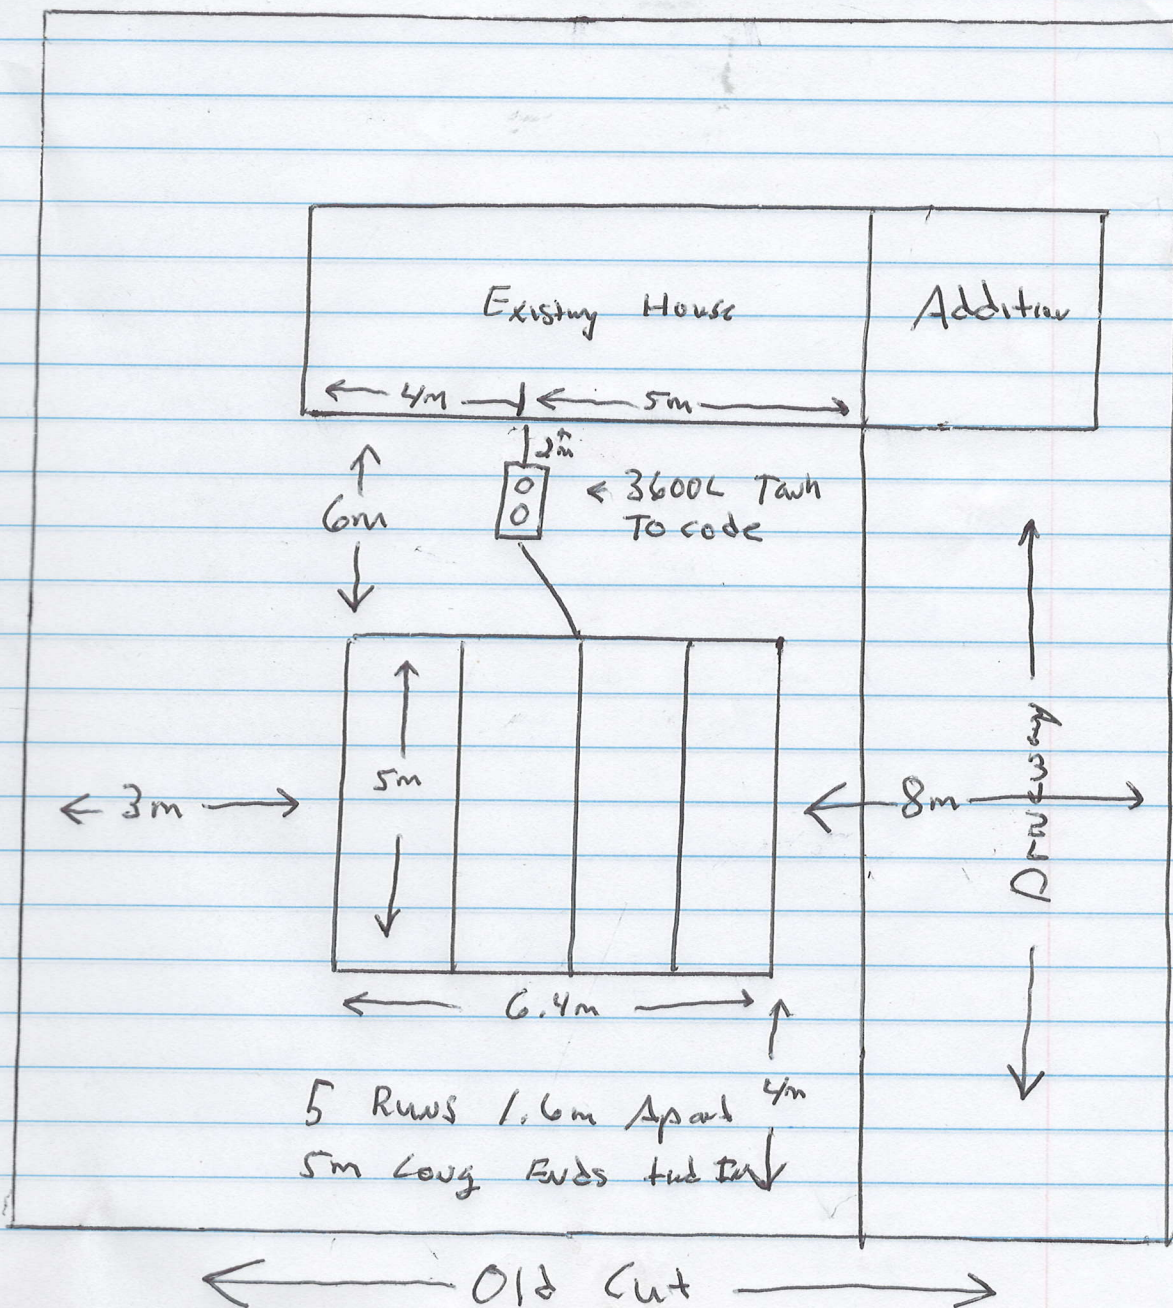 Existing House
Addition
4m
5m
2m
6m
3600L Tank
To code
5m
3m
8m
Driveway
6.4m
4m
5 Runs 1.6m Apart
5m Long Ends tied In
Old Cut